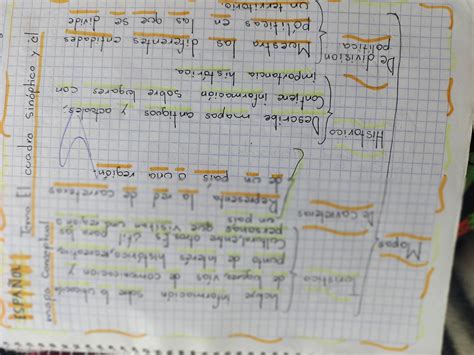 ESPAÑOL
Tema: El cuadro sinóptico y el
mapa conceptual
Mapas
Turístico
Incluye información sobre la ubicación
de lugares, vías de comunicación y
punto de interés históricos,
Cultural, entre otros. Es útil para las
personas que visitan una región o
un país
de carreteras
Representa la red de carreteras
de un país o una región.
Histórico
Describe mapas antiguos y actuales.
Contiene información sobre lugares con
importancia histórica.
De división
política
Muestra las diferentes entidades
políticas en las que se divide
un territorio.